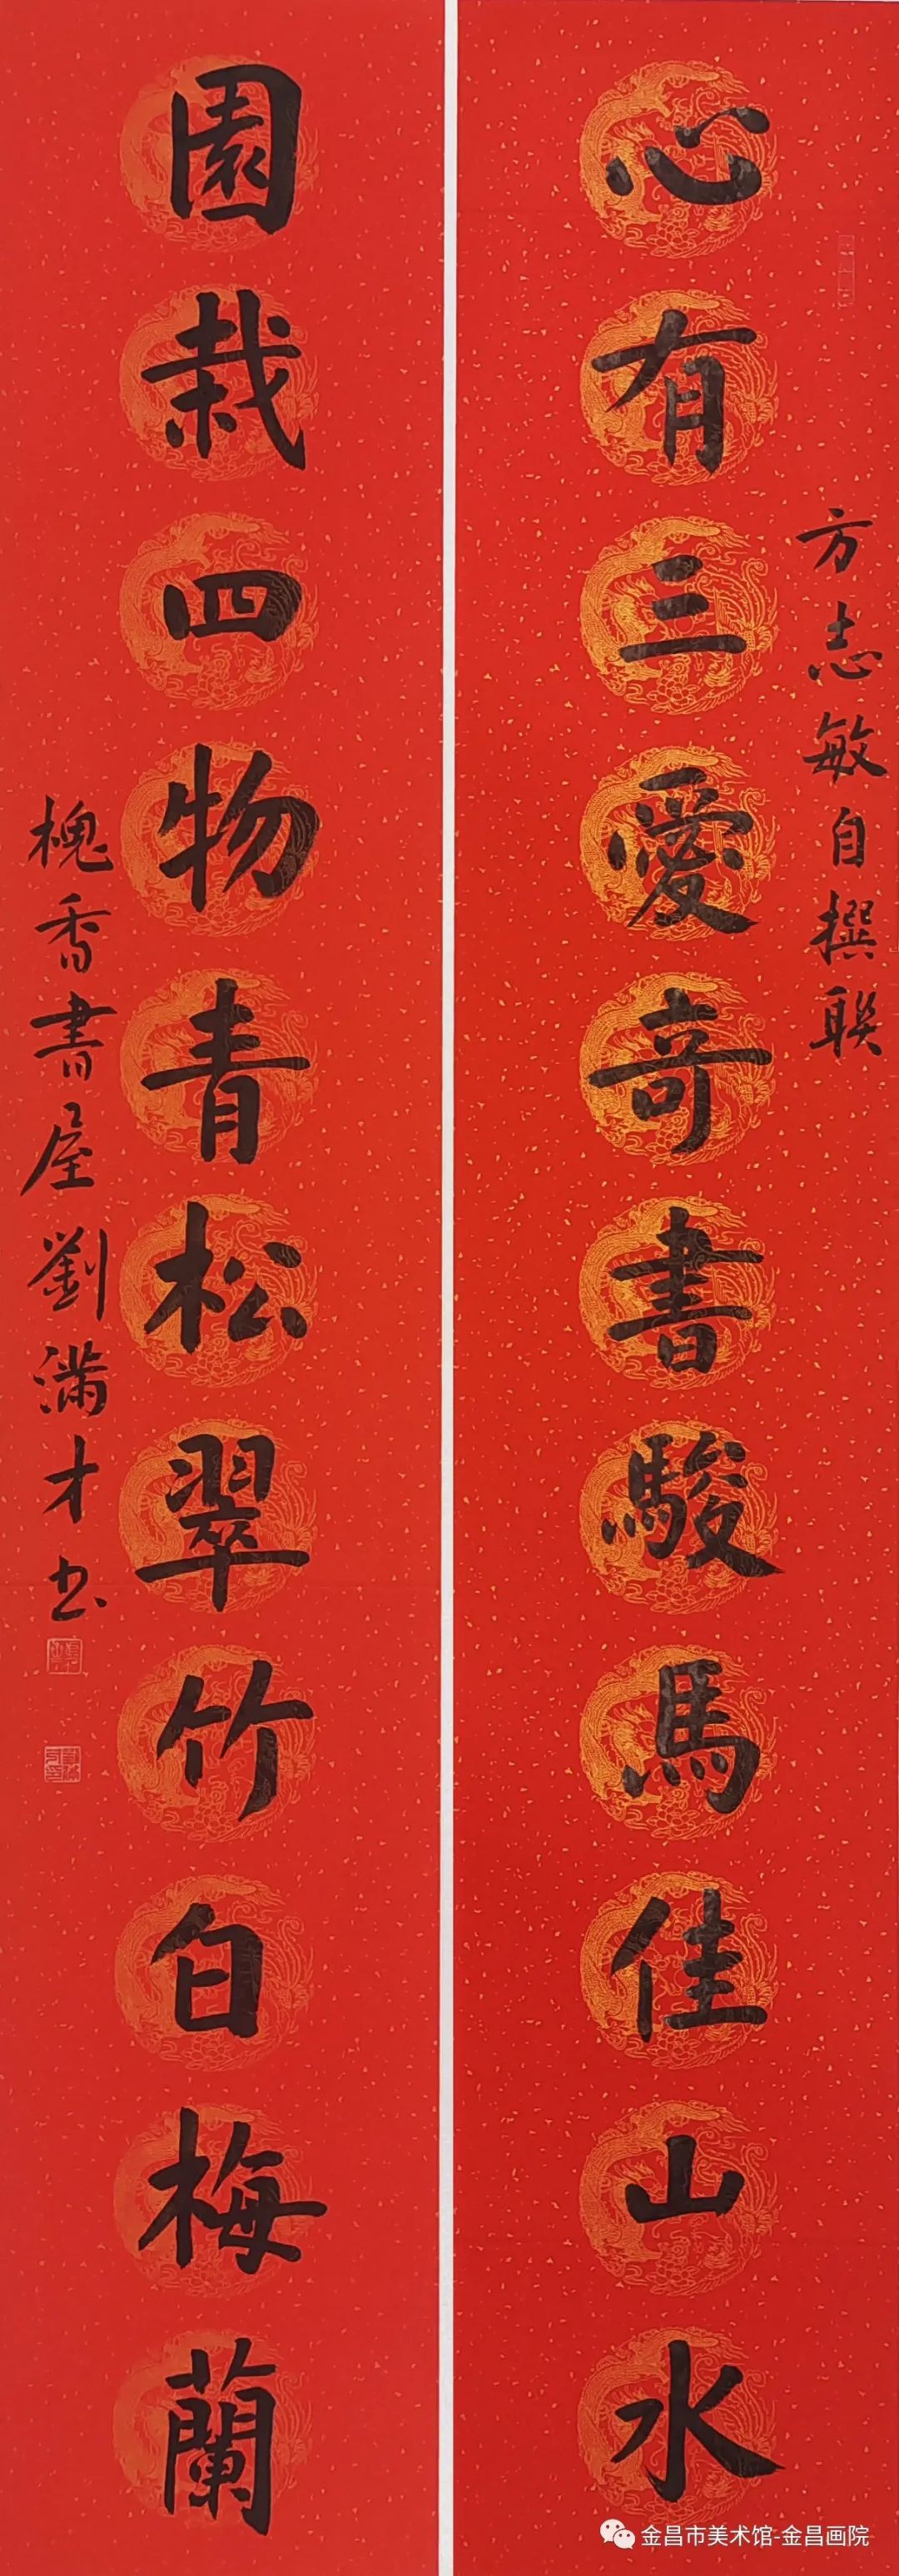 方志敏自撰联
心有三愛奇書駿馬佳山水
園栽四物青松翠竹白梅蘭
槐香書屋劉满才书
金昌市美术馆-金昌画院